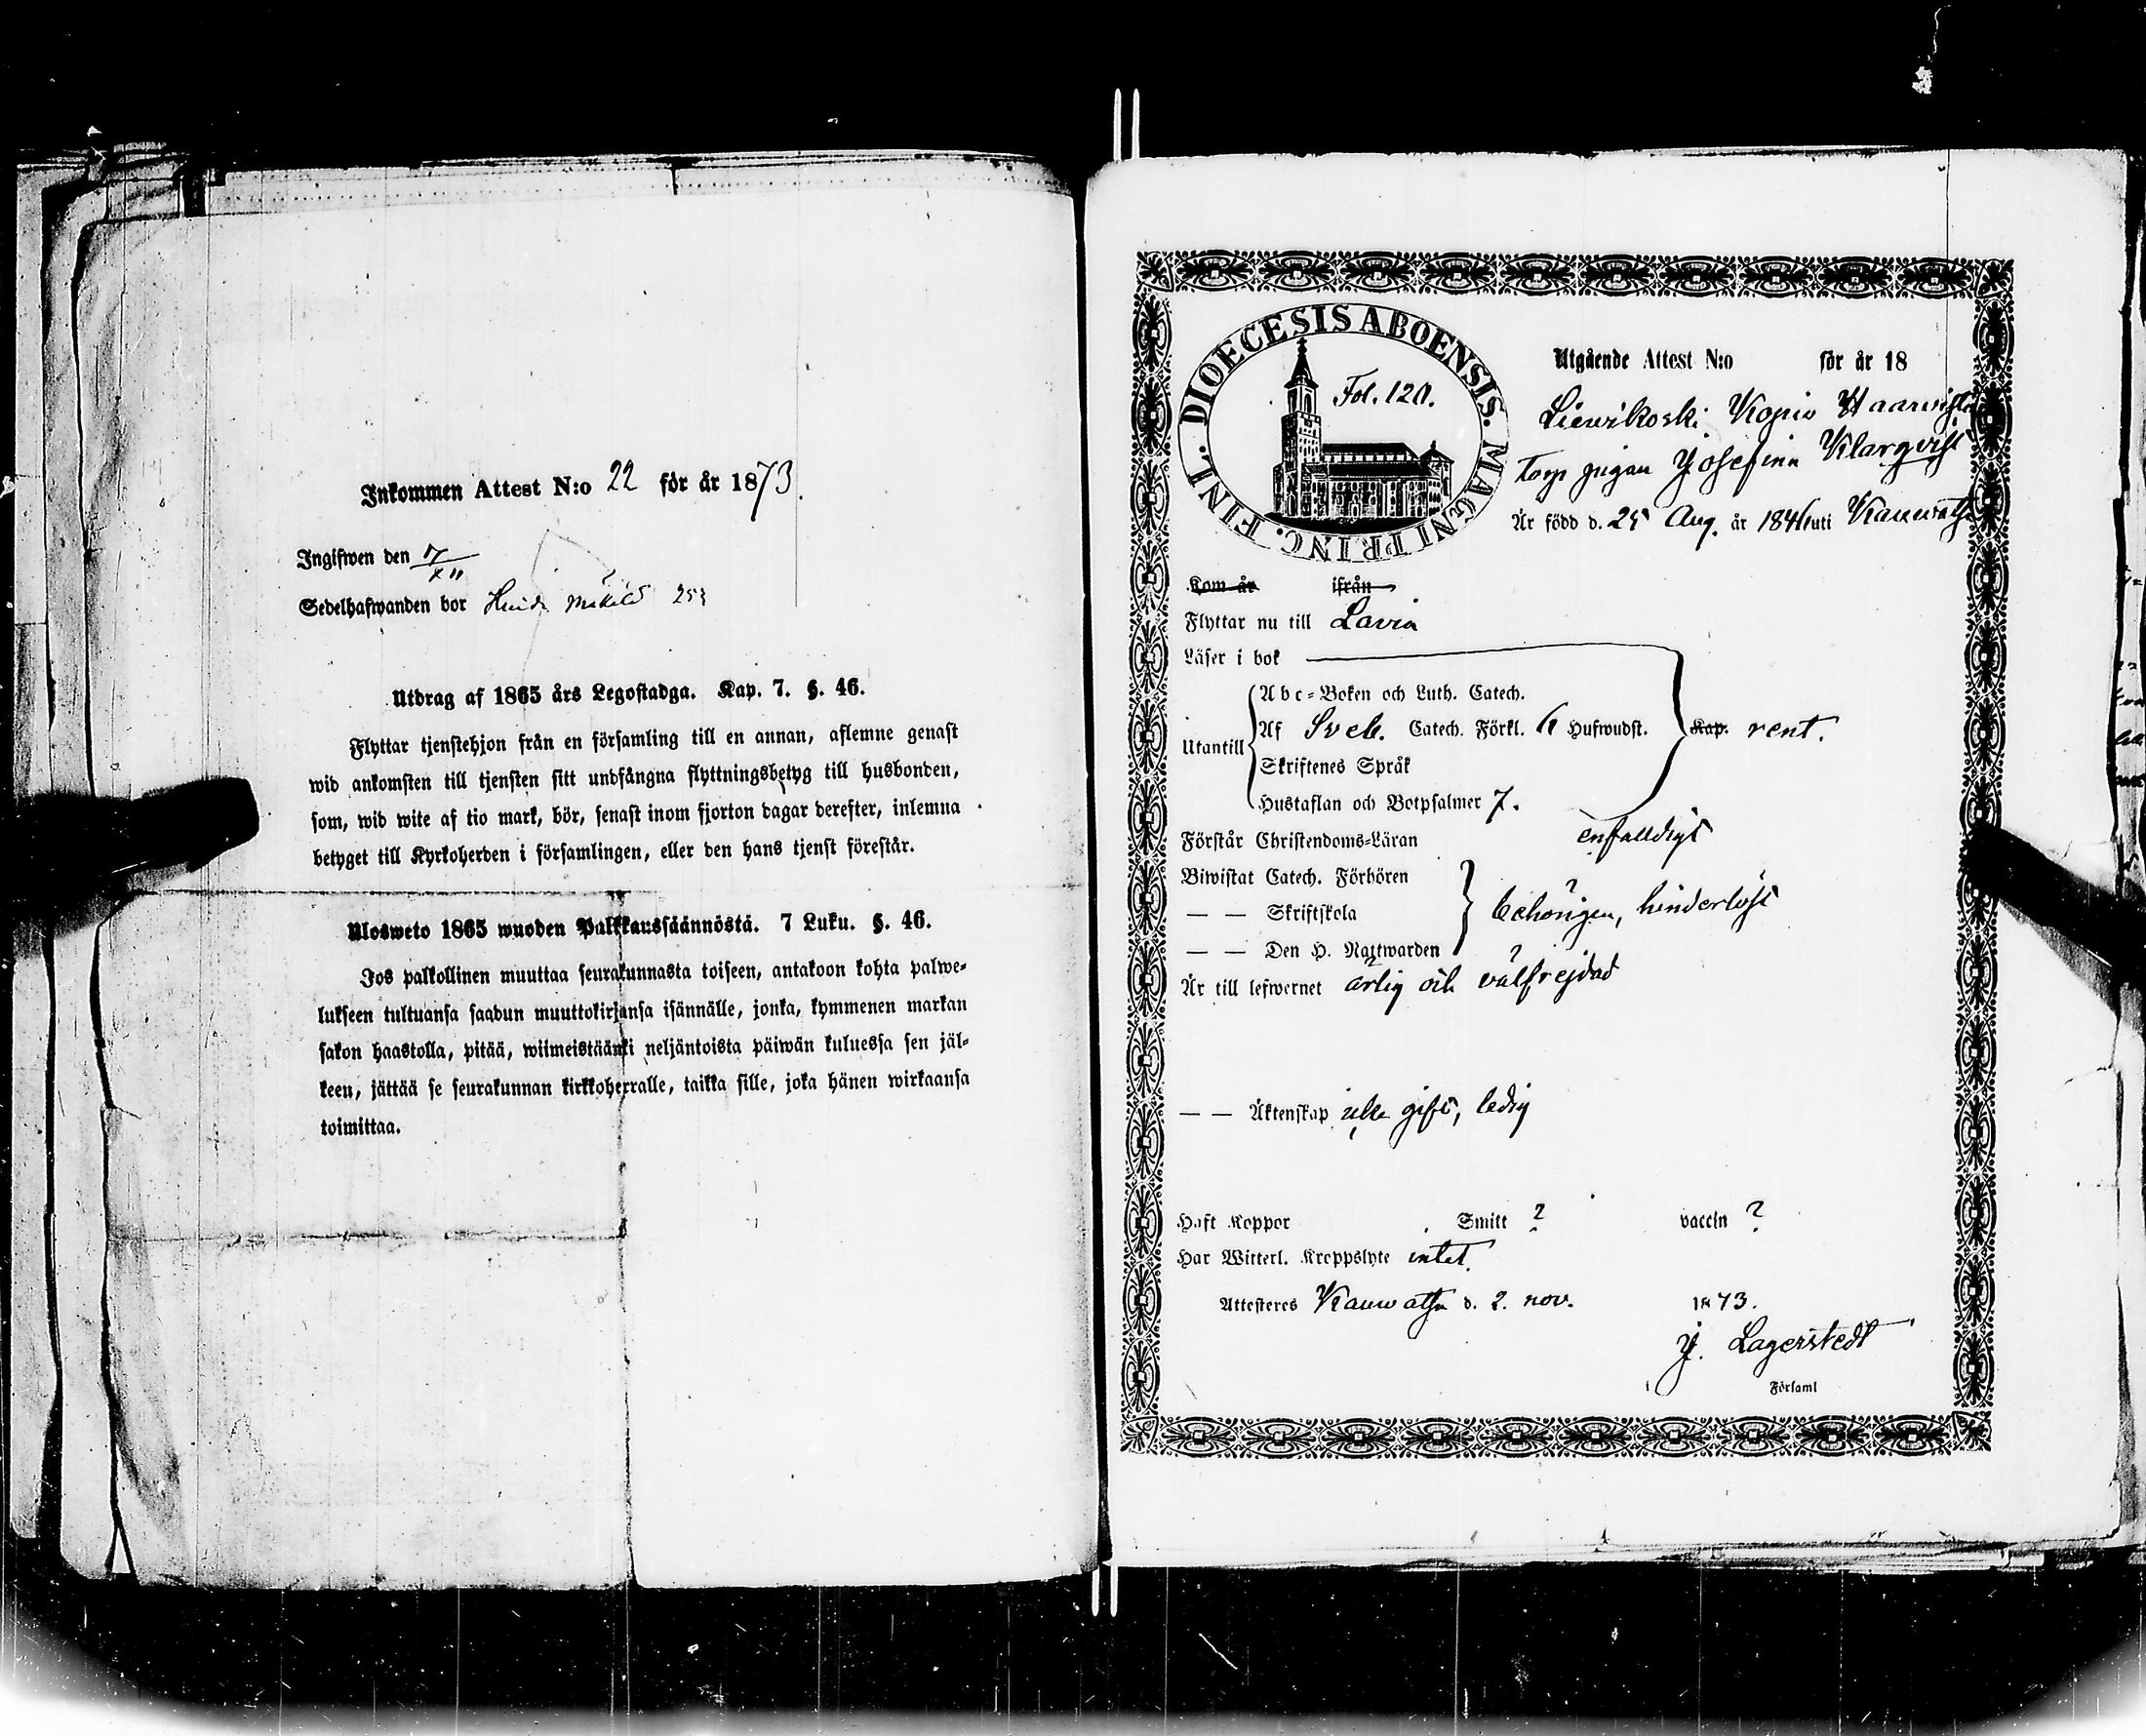 Inkommen Attest N:o 22 för år 1873.
Ingifwen den 7/XII
Sedelhafwanden bor
Utdrag af 1865 års Legostadga. Kap. 7. §. 46.
Flyttar tjenstehjon från en församling till en annan, aflemne genast
wid ankomsten till tjensten sitt undfångna flyttningsbetyg till husbonden,
som, wid wite af tio mark, bör, senast inom fjorton dagar derefter, inlemna
betyget till Kyrkoherden i församlingen, eller den hans tjenst förestår.
Ulosweto 1865 wuoden Palkkaussäännöstä. 7 Luku. §. 46.
Jos palkollinen muuttaa seurakunnasta toiseen, antakoon kohta palwe-
lukseen tultuansa saadun muuttokirjansa isännälle, jonka, kymmenen markan
sakon haastolla, pitää, wiimeistäänki neljäntoista päiwän kuluessa sen jäl-
keen, jättää se seurakunnan kirkkoherralle, taikka sille, joka hänen wirkaansa
toimittaa.
DIOECESIS ABOENSIS. MAGNI PRINC. FINL.
Fol. 120.
Utgående Attest N:o för år 18
Liewikoski Kopio
torp pigan Josefina Klarqvist
Är född d. 25 Aug. år 1846 uti Kauwatsa
Kom år ifrån
Flyttar nu till Lavia
Läser i bok
Utantill
Abc-Boken och Luth. Catech.
Af Sveb. Catech. Förkl. 6 Hufwudst.
Kap. rent.
Skriftenes Språk
Hustaflan och Botpsalmer 7.
Förstår Christendoms-Läran enfaldigt
Biwistat Catech. Förhören
— — Skriftskola behörigen, hinderlöst
— — Den H. Nattwarden
Är till lefwernet ärlig och välfrejdad
— — Äktenskap icke gift, ledig
Haft Koppor Smitt ? vaccin ?
Har Witterl. Kroppslyte intet.
Attesteres Kauwatsa d. 2. nov. 1873.
J. Lagerstedt
Församl